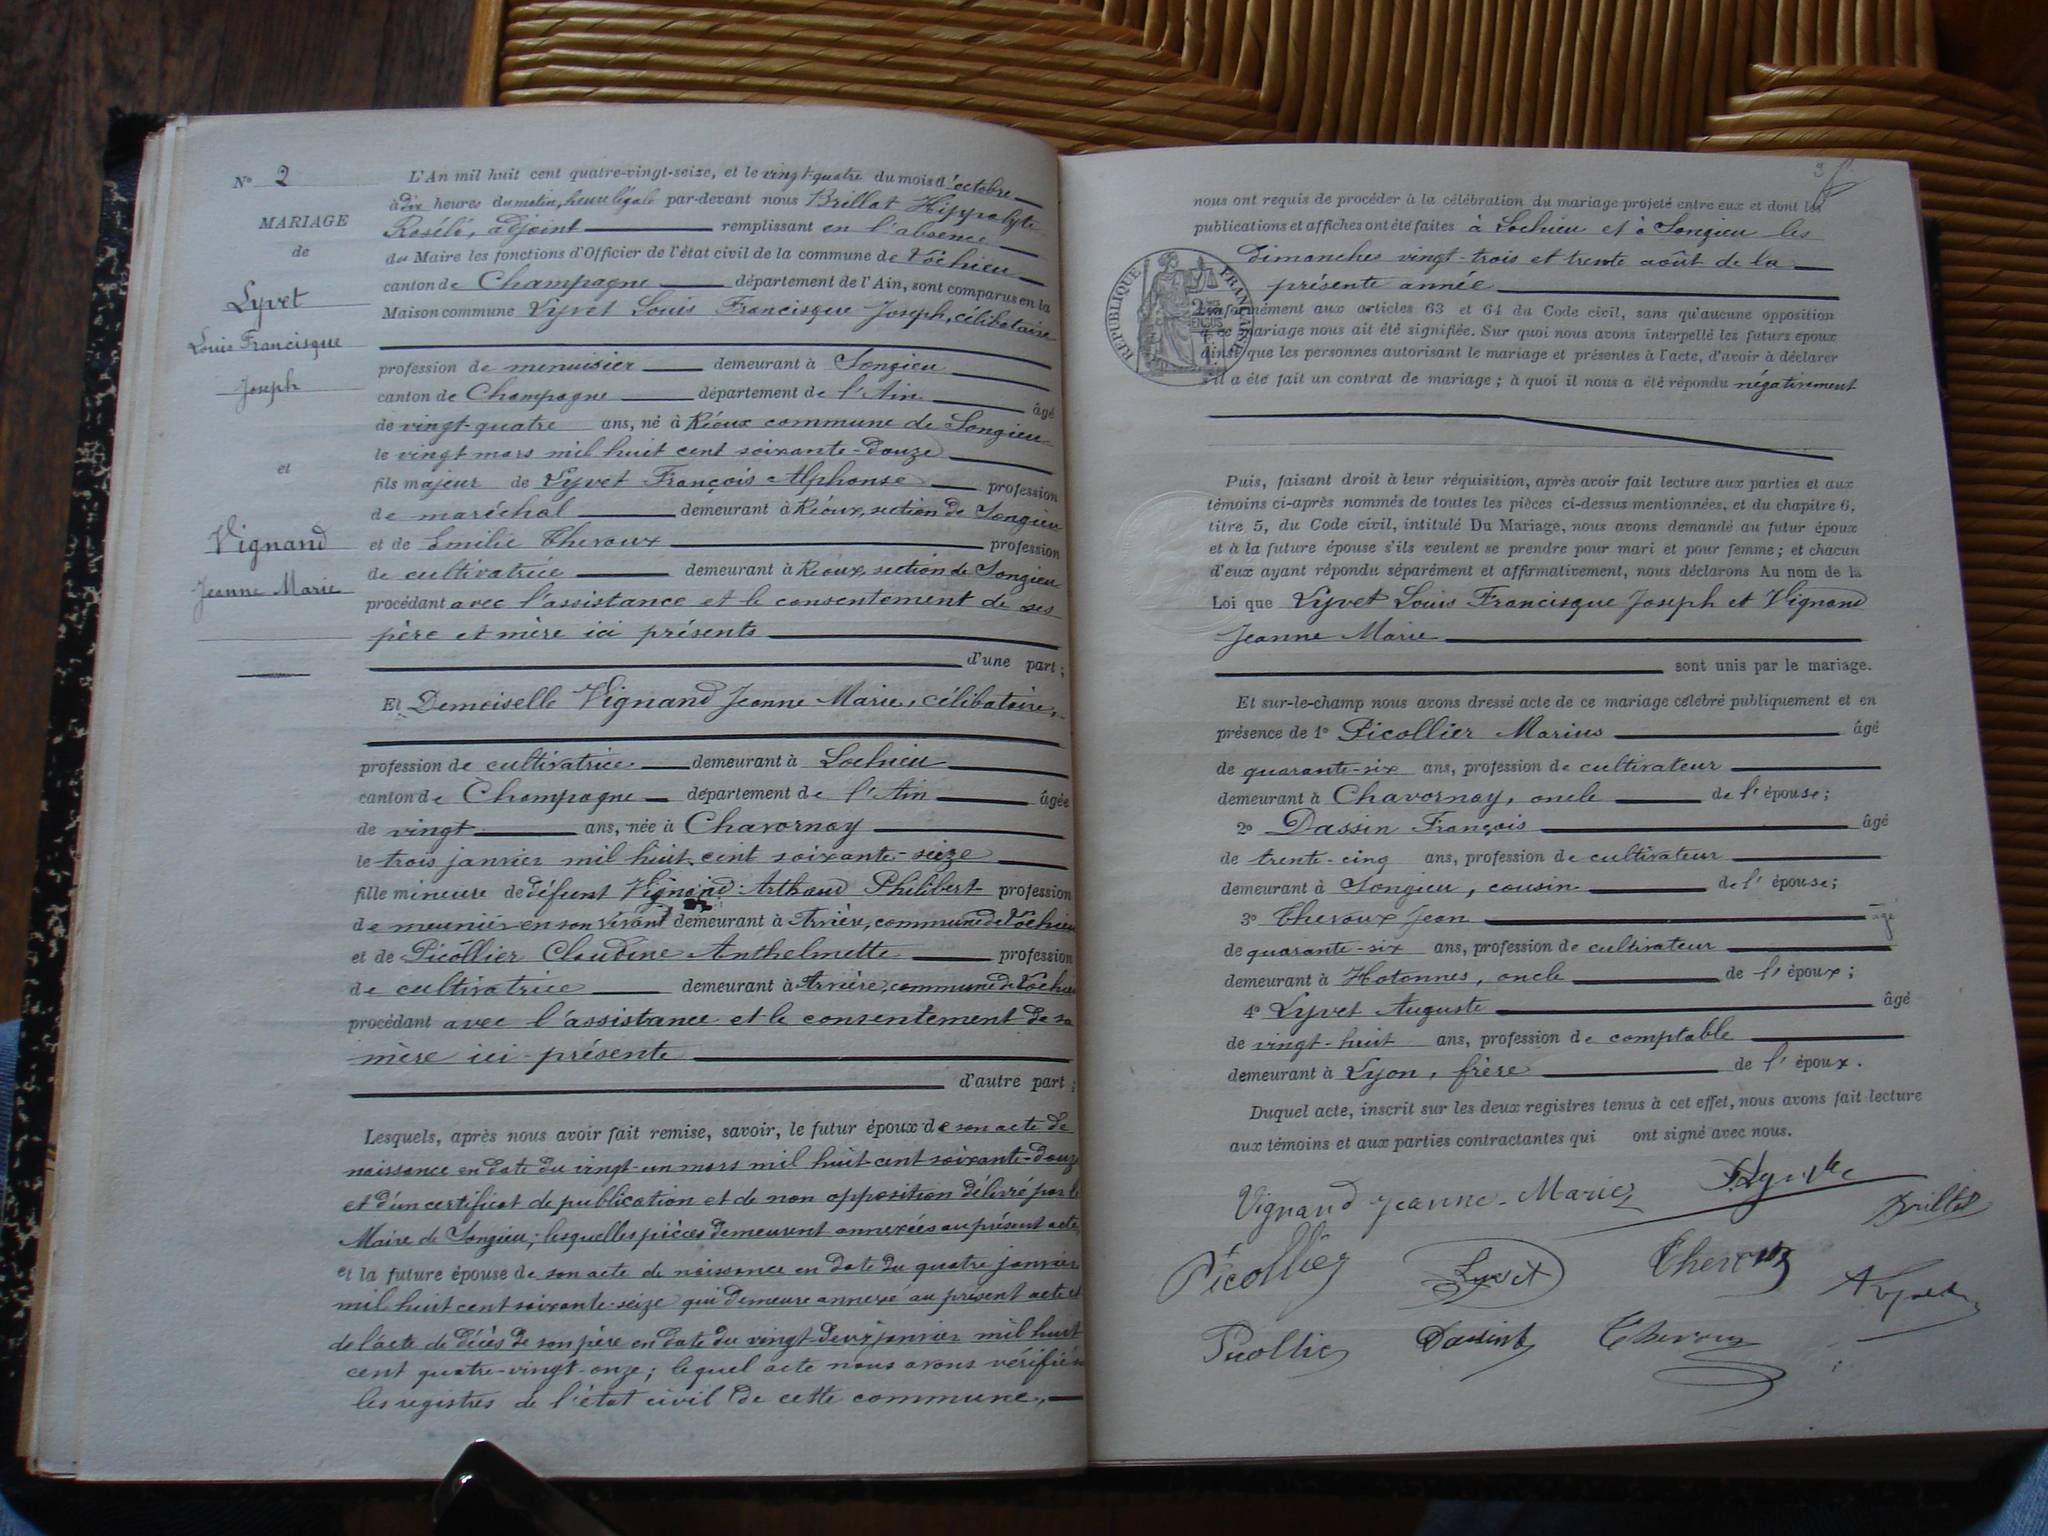 N° 2
MARIAGE
de
Lyvet
Louis Francisque
Joseph
et
Vignand
Jeanne Marie
L'An mil huit cent quatre-vingt-seize, et le vingt-quatre du mois d'octobre
à dix heures du matin, heure légale par-devant nous Brillat Hippolyte
Rosélé, adjoint remplissant en l'absence
du Maire les fonctions d'Officier de l'état civil de la commune de Lochieu
canton de Champagne département de l'Ain, sont comparus en la
Maison commune Lyvet Louis Francisque Joseph, célibataire
profession de menuisier demeurant à Songieu
canton de Champagne département de l'Ain âgé
de vingt-quatre ans, né à Réoux commune de Songieu
le vingt mars mil huit cent soixante-douze
fils majeur de Lyvet François Alphonse profession
de maréchal demeurant à Réoux, section de Songieu
et de Emilie Thevoux profession
de cultivatrice demeurant à Réoux, section de Songieu
procédant avec l'assistance et le consentement de ses
père et mère ici présents
d'une part;
Et Demoiselle Vignand Jeanne Marie, célibataire,
profession de cultivatrice demeurant à Lochieu
canton de Champagne département de l'Ain âgée
de vingt ans, née à Chavornay
le trois janvier mil huit cent soixante-seize
fille mineure de défunt Vignand Arthaud Philibert profession
de meunier en son vivant demeurant à Arvière, commune de Lochieu
et de Picollier Claudine Anthelmette profession
de cultivatrice demeurant à Arvière, commune de Lochieu
procédant avec l'assistance et le consentement de sa
mère ici présente
d'autre part;
Lesquels, après nous avoir fait remise, savoir, le futur époux de son acte de
naissance en date du vingt-un mars mil huit cent soixante-douze
et d'un certificat de publication et de non opposition délivré par le
Maire de Songieu; lesquelles pièces demeurent annexées au présent acte,
et la future épouse de son acte de naissance en date du quatre janvier
mil huit cent soixante-seize qui demeure annexé au présent acte et
de l'acte de décès de son père en date du vingt-deux janvier mil huit
cent quatre-vingt-onze; lequel acte nous avons vérifié
les registres de l'état civil de cette commune,
nous ont requis de procéder à la célébration du mariage projeté entre eux et dont les
publications et affiches ont été faites à Lochieu et à Songieu les
dimanches vingt-trois et trente août de la
présente année
RÉPUBLIQUE FRANÇAISE
conformément aux articles 63 et 64 du Code civil, sans qu'aucune opposition
à ce mariage nous ait été signifiée. Sur quoi nous avons interpellé les futurs époux
ainsi que les personnes autorisant le mariage et présentes à l'acte, d'avoir à déclarer
s'il a été fait un contrat de mariage; à quoi il nous a été répondu négativement
Puis, faisant droit à leur réquisition, après avoir fait lecture aux parties et aux
témoins ci-après nommés de toutes les pièces ci-dessus mentionnées, et du chapitre 6,
titre 5, du Code civil, intitulé Du Mariage, nous avons demandé au futur époux
et à la future épouse s'ils veulent se prendre pour mari et pour femme; et chacun
d'eux ayant répondu séparément et affirmativement, nous déclarons Au nom de la
Loi que Lyvet Louis Francisque Joseph et Vignand
Jeanne Marie
sont unis par le mariage.
Et sur-le-champ nous avons dressé acte de ce mariage célébré publiquement et en
présence de 1° Picollier Marius âgé
de quarante-six ans, profession de cultivateur
demeurant à Chavornay, oncle de l'épouse;
2° Dassin François âgé
de trente-cinq ans, profession de cultivateur
demeurant à Songieu, cousin de l'épouse;
3° Thevoux Jean âgé
de quarante-six ans, profession de cultivateur
demeurant à Hotonnes, oncle de l'époux;
4° Lyvet Auguste âgé
de vingt-huit ans, profession de comptable
demeurant à Lyon, frère de l'époux.
Duquel acte, inscrit sur les deux registres tenus à cet effet, nous avons fait lecture
aux témoins et aux parties contractantes qui ont signé avec nous.
Vignand Jeanne-Marie
Brillat
Picollier
Lyvet
Thevoux
Picollier
Dassin
Thevoux